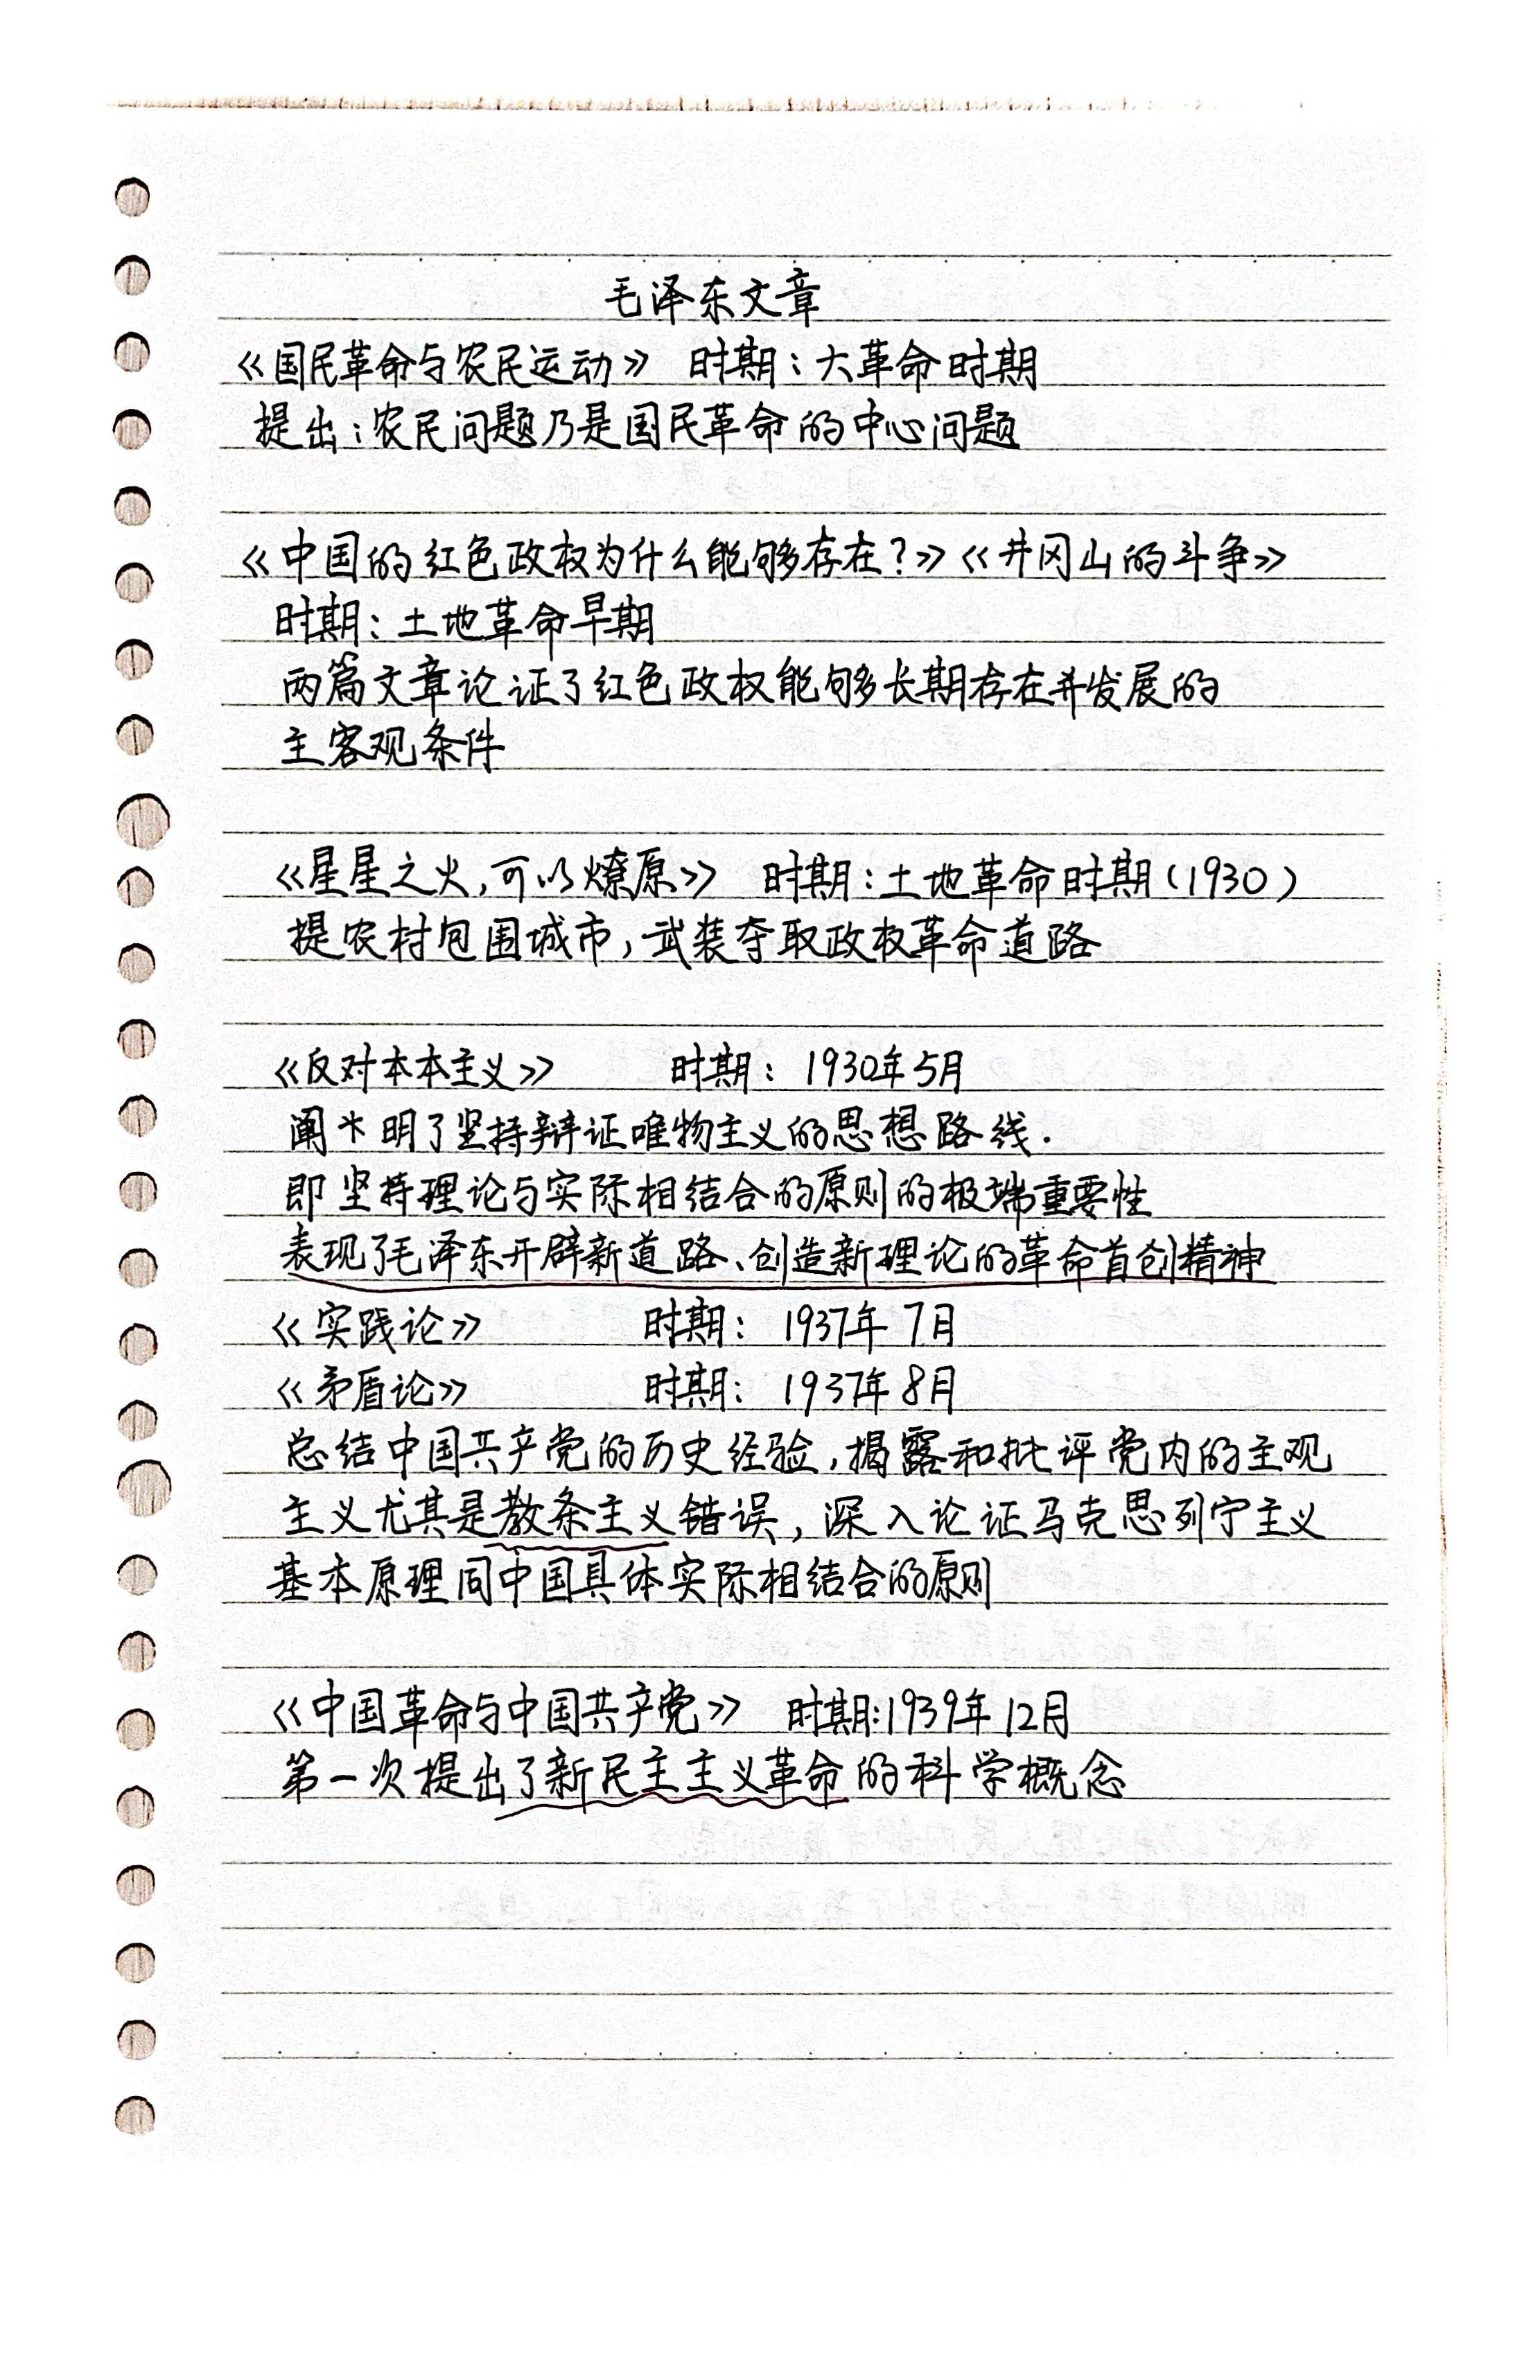 毛泽东文章
《国民革命与农民运动》 时期：大革命时期
提出：农民问题乃是国民革命的中心问题
《中国的红色政权为什么能够存在？》《井冈山的斗争》
时期：土地革命早期
两篇文章论证了红色政权能够长期存在并发展的
主客观条件
《星星之火，可以燎原》 时期：土地革命时期（1930）
提农村包围城市，武装夺取政权革命道路
《反对本本主义》 时期：1930年5月
明了坚持辩证唯物主义的思想路线．
即坚持理论与实际相结合的原则的极端重要性
表现了毛泽东开辟新道路、创造新理论的革命首创精神
《实践论》 时期：1937年7月
《矛盾论》 时期：1937年8月
总结中国共产党的历史经验，揭露和批评党内的主观
主义尤其是教条主义错误，深入论证马克思列宁主义
基本原理同中国具体实际相结合的原则
《中国革命与中国共产党》 时期：1939年12月
第一次提出了新民主主义革命的科学概念